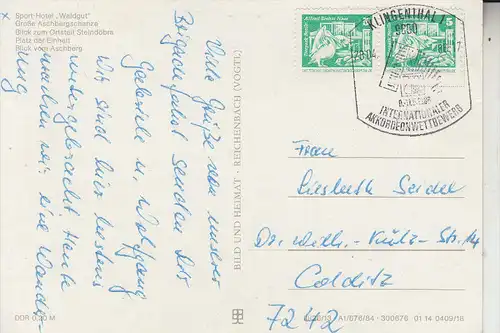 Sport-Hotel „Waldgut"
Große Aschbergschanze
Blick zum Ortsteil Steindöbra
Platz der Einheit
Blick vom Aschberg
Viele Grüße von unserer
Brigadefahrt senden Dir
Gabriele u. Wolfgang
Wir sind hier bestens
untergebracht. Heute
machen wir eine Wander-
ung
BILD UND HEIMAT REICHENBACH (VOGTL)
KLINGENTHAL 1
INTERNATIONALER
AKKORDEONWETTBEWERB
Frau
Liesbeth Seidel
Dr. Wilh.-Külz-Str. 14
Colditz
7242
DDR 0,20 M
A1/676/84 300676 01 14 0409/16